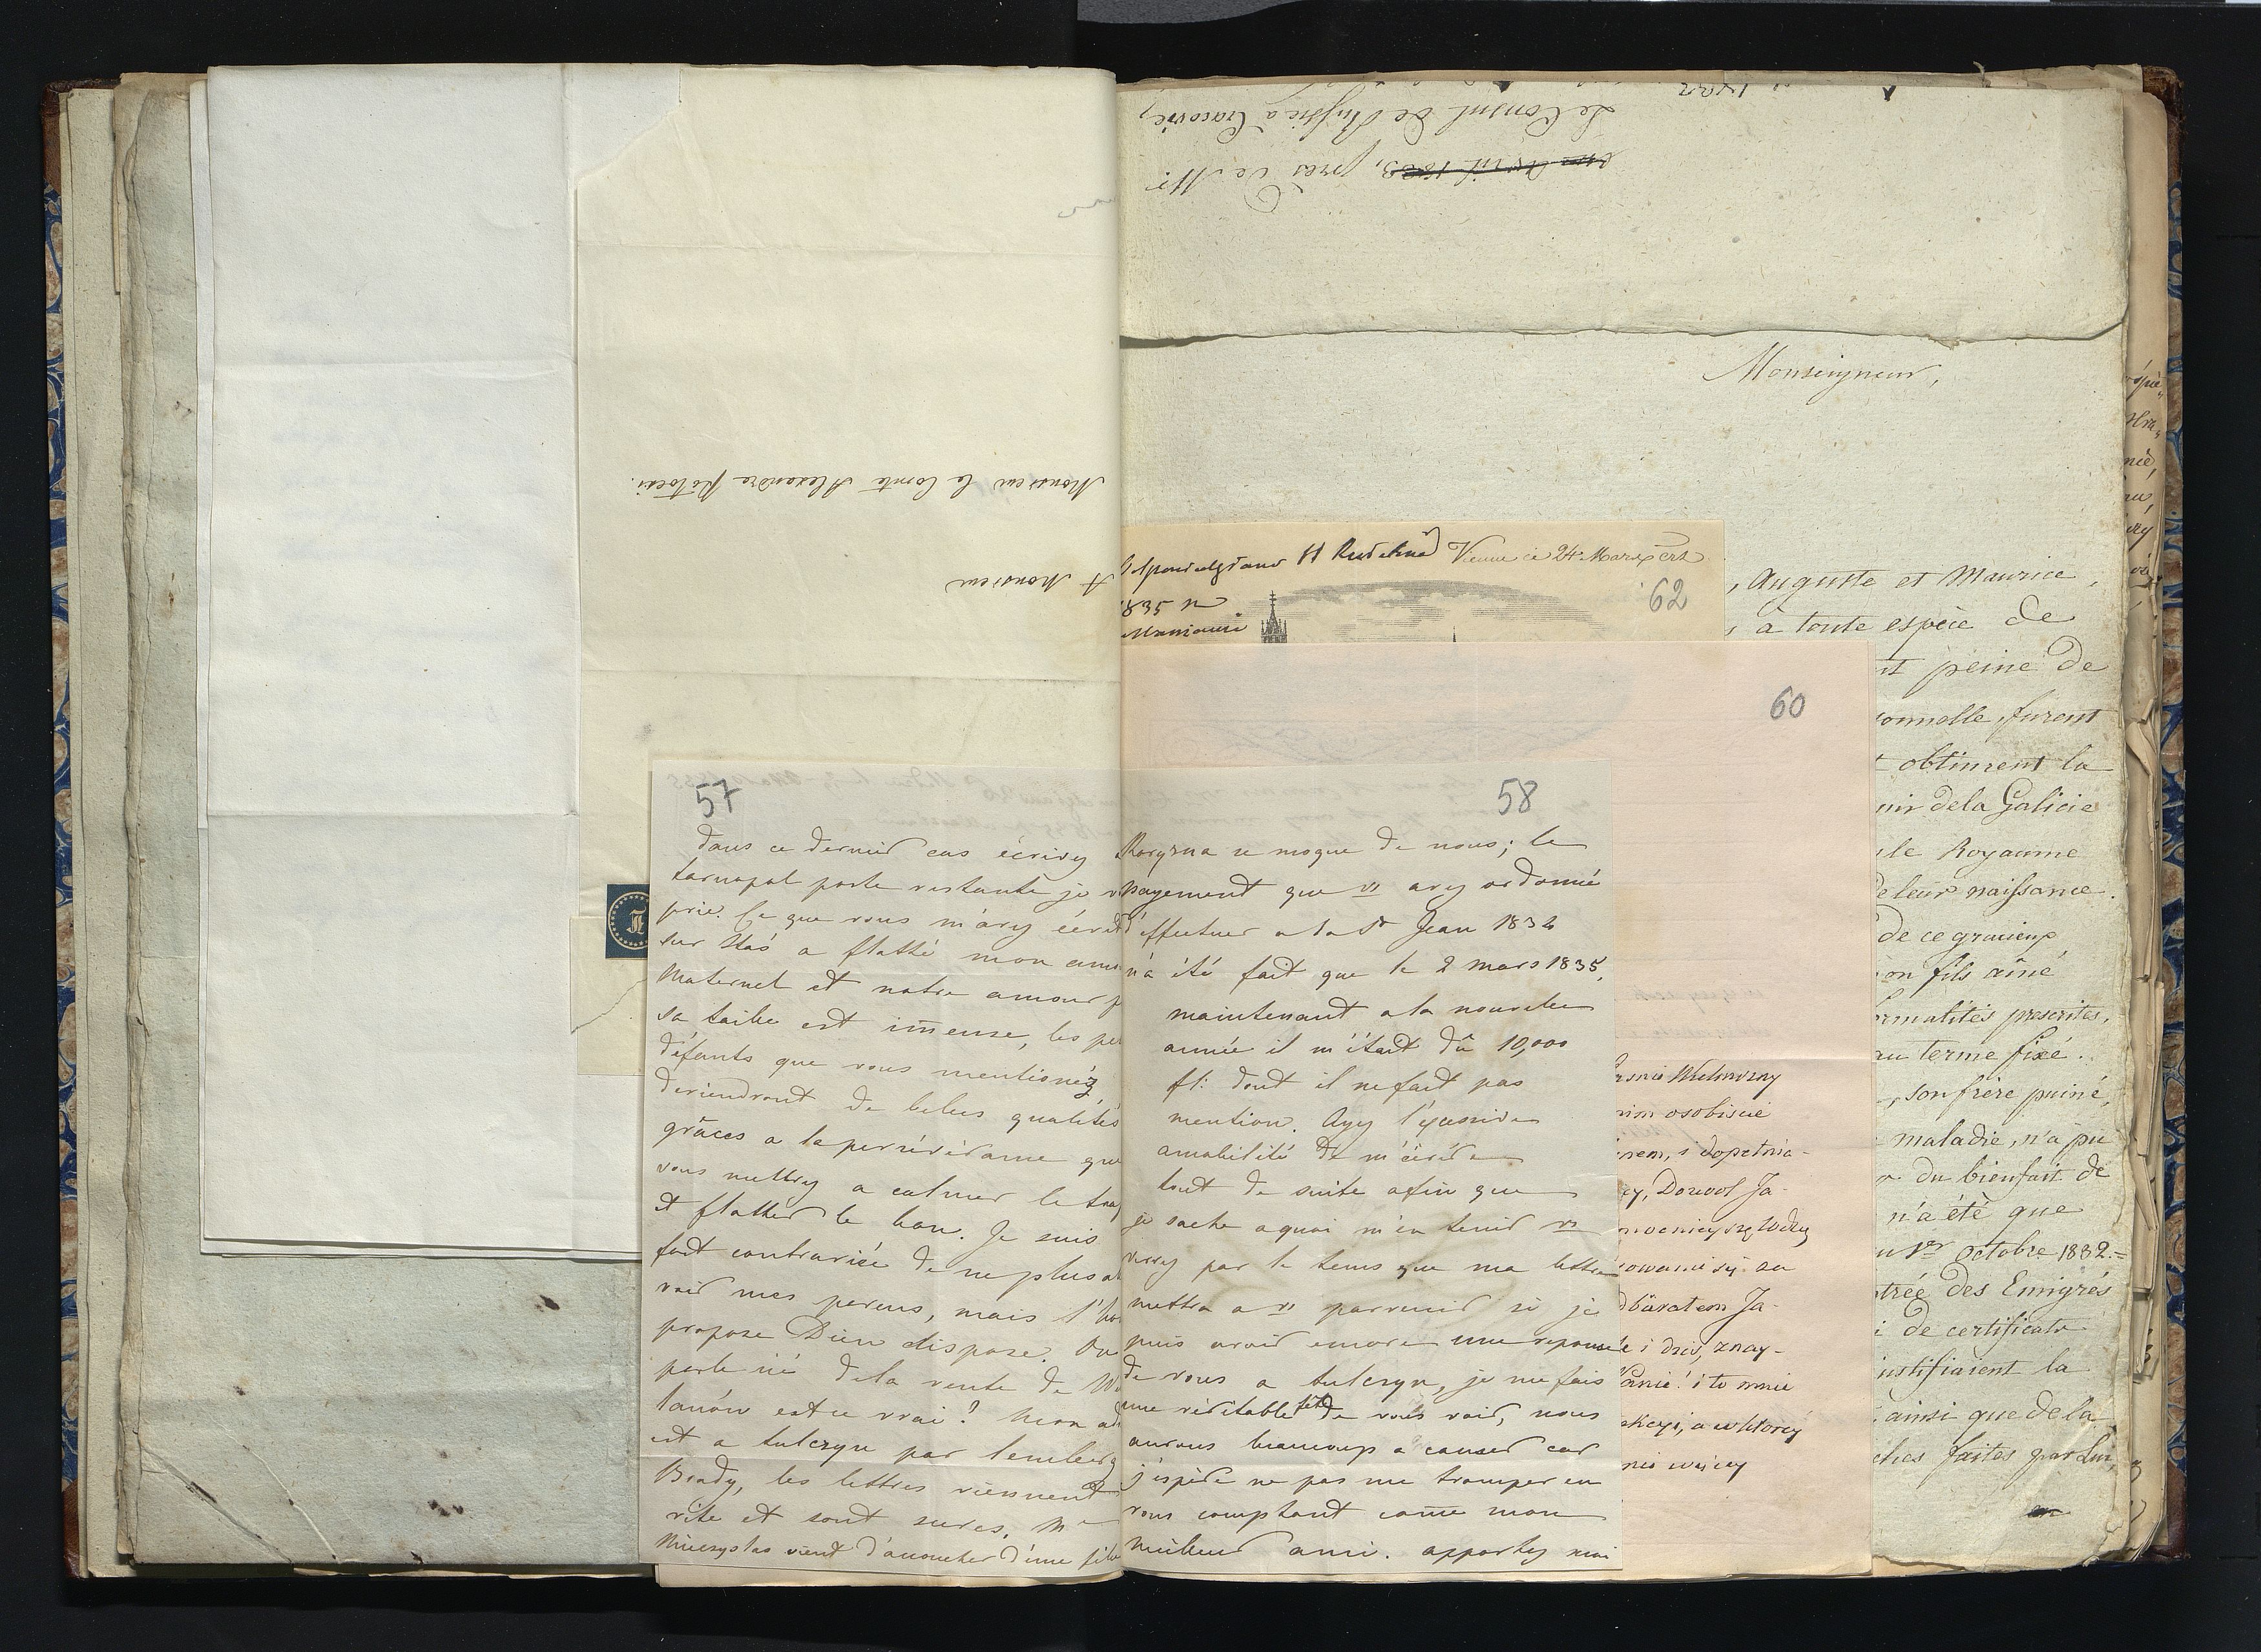 Le Consul de Russie à Cracovie,
en avril 1833, près de Mr.
Monsieur le Comte Alexandre Potocki.
A Monsieur
Monseigneur,
Vienne ce 24 Mars
62
1835
, Auguste et Maurice,
à toute espèce de
nt peine de
sonnelle, furent
t obtinrent la
nir de la Galicie
le Royaume
de leur naissance.
de ce gracieux
on fils aîné
ormalités prescrites,
au terme fixé.
, son frère puiné,
maladie, n'a pu
r du bienfait de
n'a été que
u 1er Octobre 1832.=
trée des Emigrés
i de certificats
justifiaient la
ainsi que de la
ches faites par lui,
en
60
asnie Wielmożny
nim osobiście
nem, i dopełnia-
y, Dozwol Ja-
owanie są za
dbüratem Ja-
e i dziś, znay-
Panie! i to mnie
ekcyi, a w którey
57
dans ce dernier cas écrivez
tarnopol poste restante je v
prie. Ce que vous m'avez écrit
sur Staś a flatté mon amo
Maternel et notre amour p
sa taille est imense, les pe
défauts que vous mentionéz
deviendront de belles qualités
grâces a la persévérance que
vous mettrez a calmer le trop
et flatter le bon. Je suis
fort contrariée de ne plus a
voir mes parens, mais l'ho
propose Dieu dispose. On
parle ici de la vente de Wi
lanów est ce vrai? Mon ad
est a tulczyn par lemberg
Brody, les lettres viennent
vite et sont sures. Me
Mieczyslas vient d'accoucher d'une fille
58
Roryzna se moque de nous; le
payement que vs avez ordonné
d'effectuer a la St Jean 1834
n'a été fait que le 2 mars 1835,
maintenant a la nouvelle
année il m'était dû 10,000
fl: dont il ne fait pas
mention. Ayez l'extreme
amabilité de m'écrire
tout de suite afin que
je sache a quoi m'en tenir vs
verrez par le tems que ma lettre
mettra a vs parvenir si je
puis avoir encore une reponse
de vous a tulczyn, je me fais
une véritable fête de vous voir, nous
aurons beaucoup a causer car
j'espère ne pas me tromper en
vous comptant come mon
Meilleur ami. apportez moi